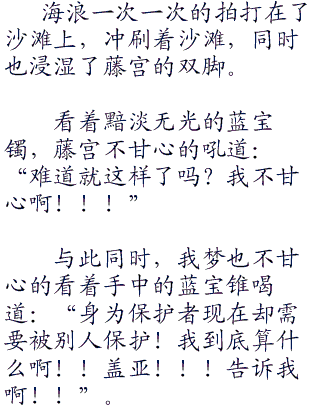 海浪一次一次的拍打在了
沙滩上，冲刷着沙滩，同时
也浸湿了藤宫的双脚。
看着黯淡无光的蓝宝
镯，藤宫不甘心的吼道：
“难道就这样了吗？我不甘
心啊！！！”
与此同时，我梦也不甘
心的看着手中的蓝宝锥喝
道：“身为保护者现在却需
要被别人保护！我到底算什
么啊！！盖亚！！！告诉我
啊！！”。